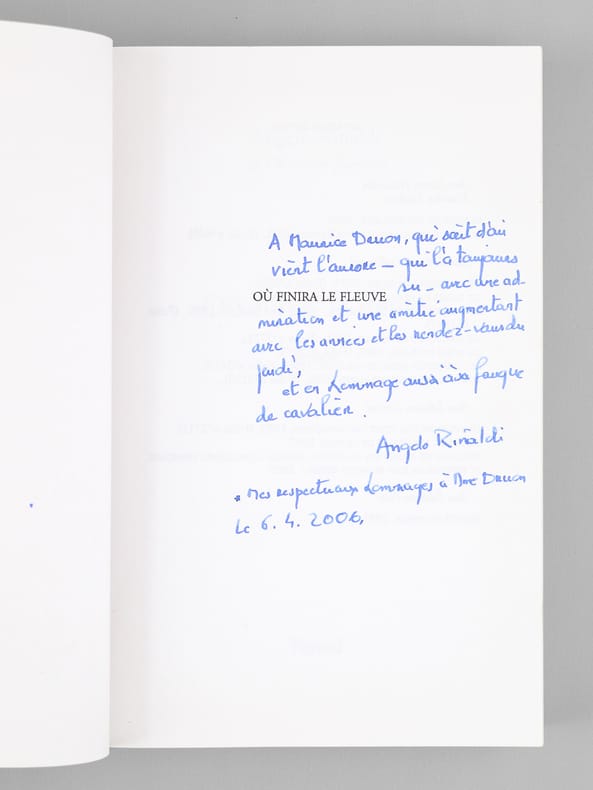 A Maurice Druon, qui sait d'où
vient l'aurore – qui l'a toujours
su – avec une ad-
OÙ FINIRA LE FLEUVE
miration et une amitié augmentant
avec les années et les rendez-vous du
jeudi,
et en hommage aussi à sa fougue
de cavalier.
Angelo Rinaldi
* Mes respectueux hommages à Mme Druon
Le 6.4.2006.